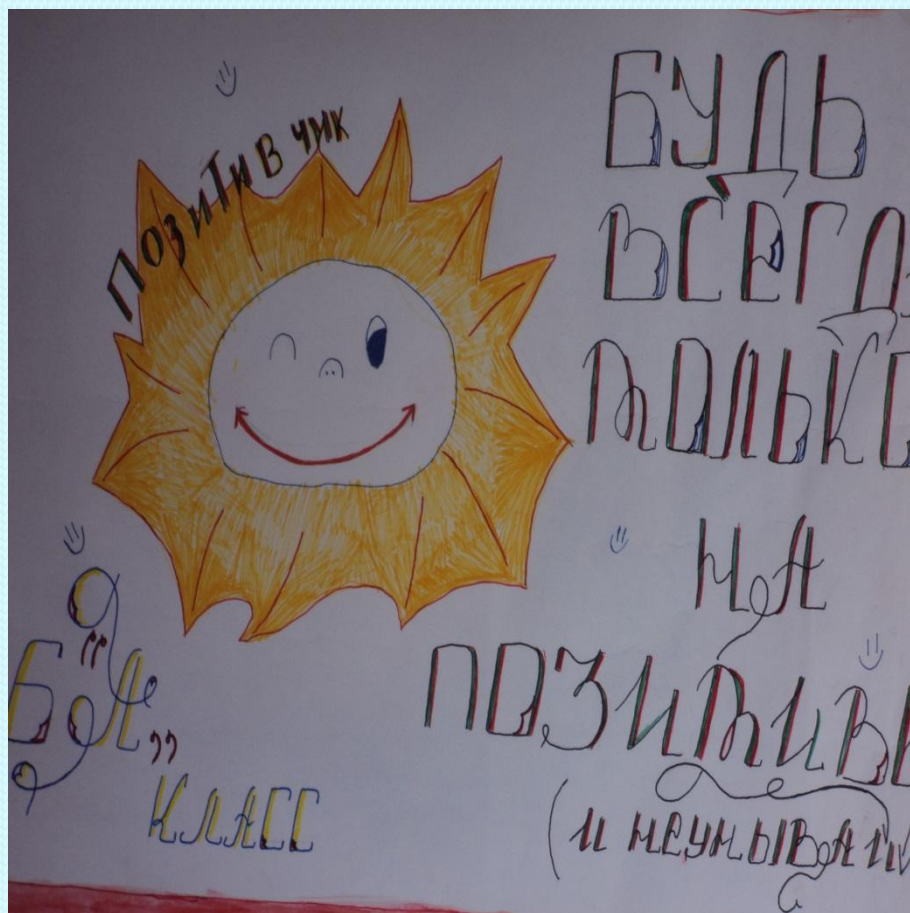 ПОЗИТИВЧИК
БУДЬ
ВСЕГД
ТОЛЬКО
НА
ПОЗИТИВЕ
(И НЕУНЫВАЙ
Б "А„
КЛАСС